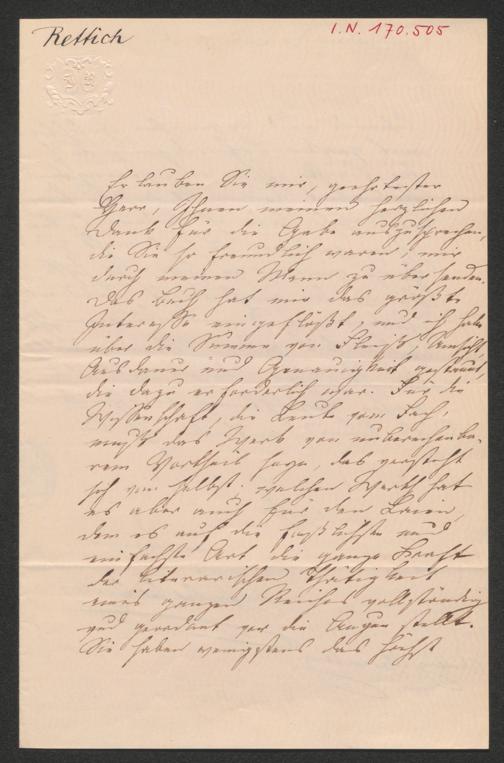 Rettich
I.N. 170.505
Erlauben Sie mir, geehrtester
Herr, Ihnen meinen herzlichen
Dank für die Gabe auszusprechen,
die Sie so freundlich waren, mir
durch meinen Mann zu übersenden.
Das Buch hat mir das größte
Interesse eingeflößt, und ich habe
über die Summe von Fleiß, Umsicht,
Ausdauer und Genauigkeit gestaunt,
die dazu erforderlich war. Für die
Wissenschaft, die Leute vom Fach,
muß das Werk von unberechenba-
rem Vortheil sein, das versteht
sich von selbst. welchen Werth hat
es aber auch für den Laien,
dem es auf die faßlichste und
einfachste Art die ganze Kraft
der literarischen Thätigkeit
eines ganzen Reiches vollständig
und geordnet vor die Augen stellt.
Sie haben wenigstens das höchst